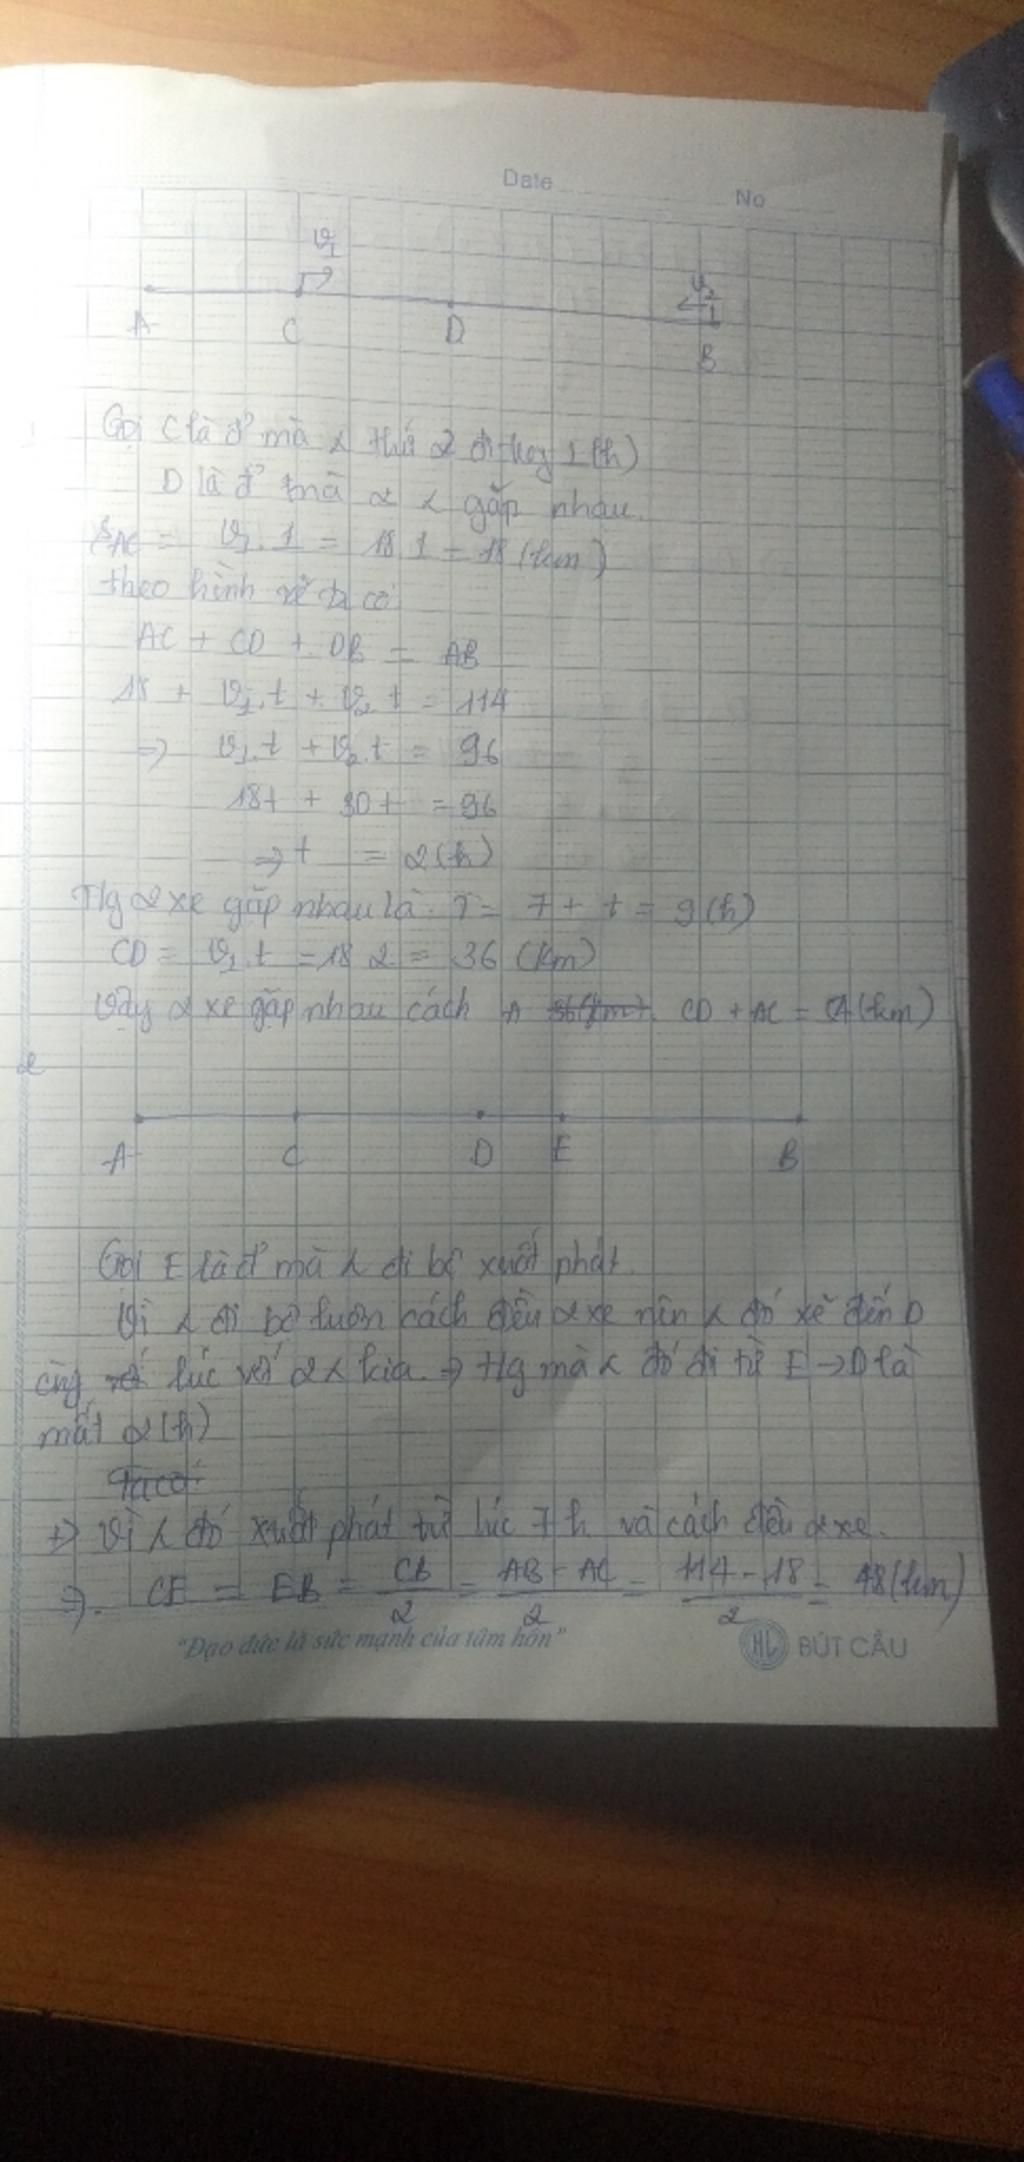 Date No
v₁ v₂
A C D B
Gọi C là đ' mà x thứ 2 đi 1 (h)
D là đ' mà 2 x gặp nhau.
S_AC = v₁ . 1 = 18.1 = 18 (km)
theo hình vẽ ta có
AC + CD + DB = AB
18 + v₁.t + v₂.t = 114
=> v₁.t + v₂.t = 96
18t + 30t = 96
=> t = 2 (h)
Tlg 2 xe gặp nhau là: T = 7 + t = 9 (h)
CD = v₁.t = 18.2 = 36 (km)
Vậy 2 xe gặp nhau cách A 36 (km) CD + AC = (km)
2
A C D E B
Gọi E là đ' mà x đi bộ xuất phát.
Vì x đi bộ luôn cách đều 2 xe nên x đó xẽ đến D
cùng lúc với 2 x kia. => tlg mà x đó đi từ E -> D là
mất 2 (h)
Ta có:
+> Vì x đó xuất phát từ lúc 7h và cách đều 2 xe.
=>. CE = EB = CB/2 = AB - AC/2 = 114 - 18/2 = 48 (km)
"Đạo đức là sức mạnh của tâm hồn" HL BÚT CẦU